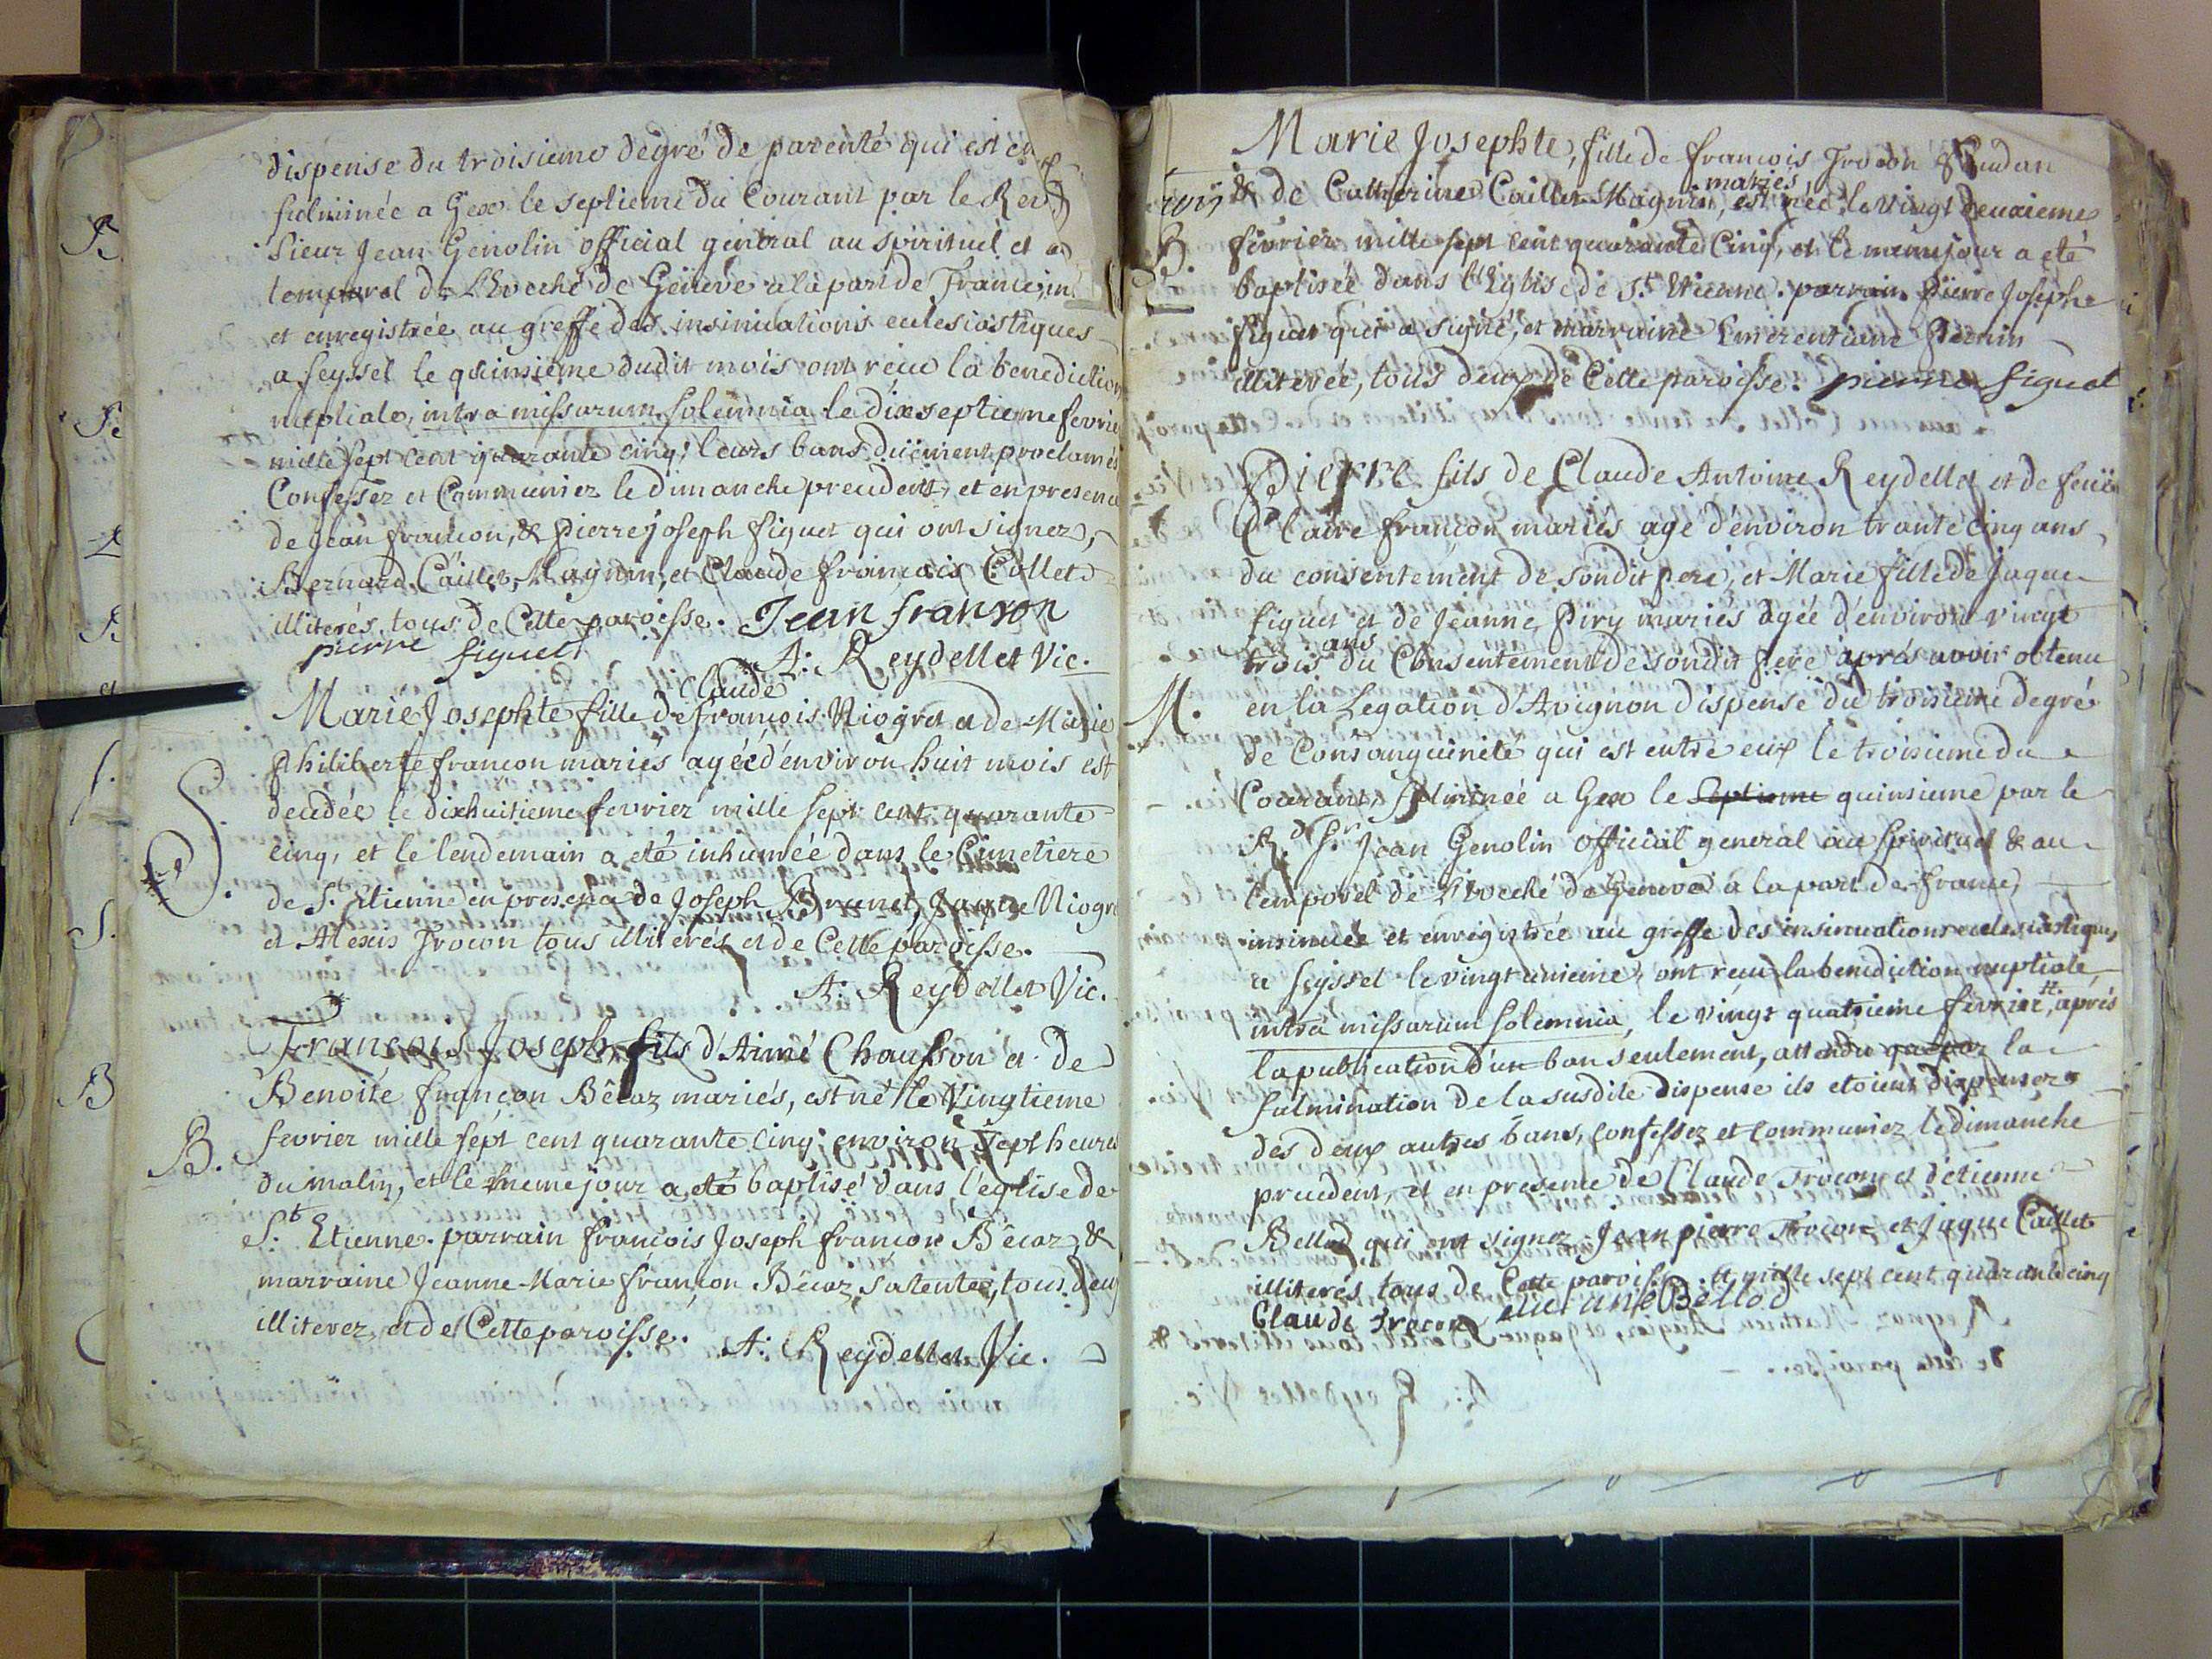 dispense du troisieme degré de parenté qui est en
fulminée a Gex le septieme du Courant par le Rev
Sieur Jean Genolin official general au spirituel et a
temporel de L'Eveché de Geneve a la part de France, in
et enregistrée au greffe des insinuations eclesiastiques
a seyssel le quinsieme dudit mois ont réçu la benediction
nuptiale, intra missarum solemnia, le dixseptieme fevrie
mille sept cent quarante cinq; leurs bans düement proclamés
Confessez et Communiez le dimanche precedent, et en presence
de jean françon, & pierre joseph figuet qui ont signez,
Bernard Caillet-Magnin, et Claude françois Collet
illiterés tous de Cette paroisse. Jean franson
pierre figuet
A: Reydellet Vic.
Claude
Marie Josephte fille de françois Niogret et de Marie
philiberte francon mariés agée d'environ huit mois est
decedée le dixhuitieme fevrier mille sept cent quarante
S.
cinq, et le lendemain a eté inhumée dans le Cimetiere
de St. Etienne en presence de Joseph Brunet, Jaque Niogre
et Alexis Trocon tous illiterés et de Cette paroisse.
A: Reydellet Vic.
François Joseph fils d'Aimé Chausson et de
Benoite françon Bêcaz mariés, est né le Vingtieme
B. fevrier mille sept cent quarante cinq environ sept heures
du matin, et le meme jour a eté baptisé dans l'eglise de
St. Etienne. parrain françois Joseph francon Bêcaz, &
marraine Jeanne-Marie françon Bêcaz, sa tente, tous deux
illiterez, et de Cette paroisse. A: Reydellet Vic.
Marie Josephte, fille de francois Trocon
mariés
& de Catherine Caillet-Magnin, est née le vingt deuxieme
B. fevrier mille sept cent quarante Cinq, et le meme jour a eté
baptisée dans l'Eglise de St. Etienne. parrain Pierre Josephe
figuet qui a signé, et marraine Emerentiane Perrin
illiterée, tous deux de Cette paroisse. pierre figuet
Pierre fils de Claude Antoine Reydellet et de feüe
Claire françon mariés age d'environ trante cinq ans
du consentement de sondit pere, et Marie fille de Jaque
figuet et de Jeanne Piry mariés agée d'environ vingt
ans
trois du Consentement de sondit pere aprés avoir obtenu
M. en la Legation d'Avignon dispense du troisieme degré
de Consanguineté qui est entre eux le troisieme du
Courant, fulminée a Gex le septieme quinsieme par le
R.d Sr. Jean Genolin official general au spirituel & au
temporel de l'Eveché de Geneve a la part de france,
insinuée et enregistrée au greffe des insinuations eclesiastiques
a seyssel le vingt unieme, ont reçu la benediction nuptiale
intra missarum solemnia, le vingt quatrieme fevrier, aprés
la publication d'un ban seulement, attendu que par la
fulmination de la susdite dispense ils etoient dispensez
des deux autres bans, confessez et communiez le dimanche
precedent, et en presence de Claude Trocon et d'etienne
Bellod qui ont signez, Jean pierre Trocon et Jaque Caillet
illiterés tous de Cette paroisse. # mille sept cent quarante cinq
Claude trocon Bellod